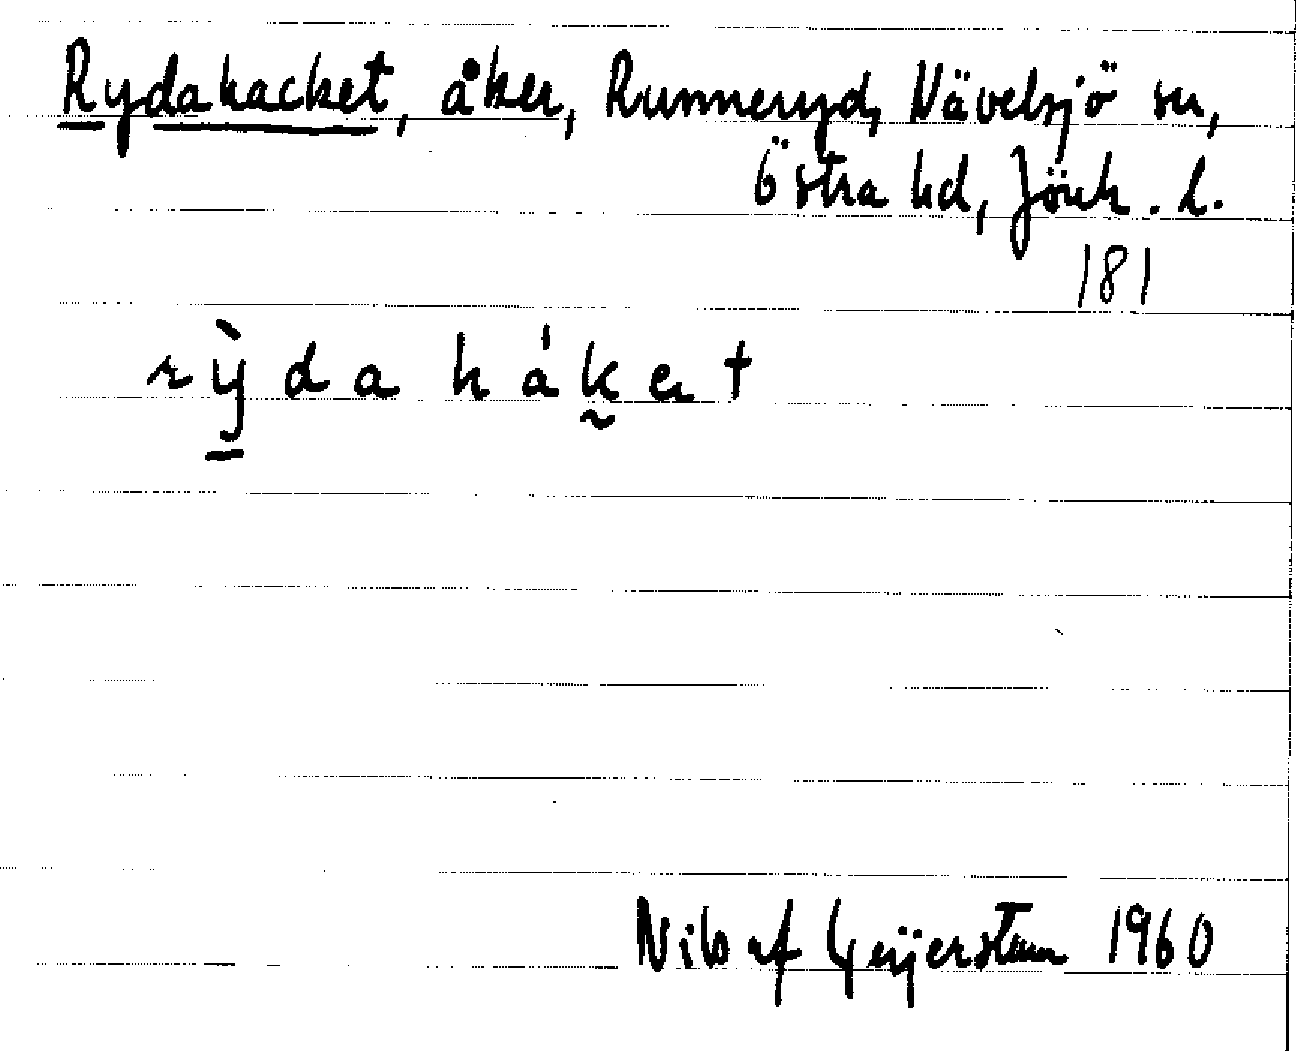 Rydahacket, åker, Runneryd, Nävelsjö sn,
Östra hd, Jönk. l.
181
rỳda háket
Nils af Geijerstam 1960